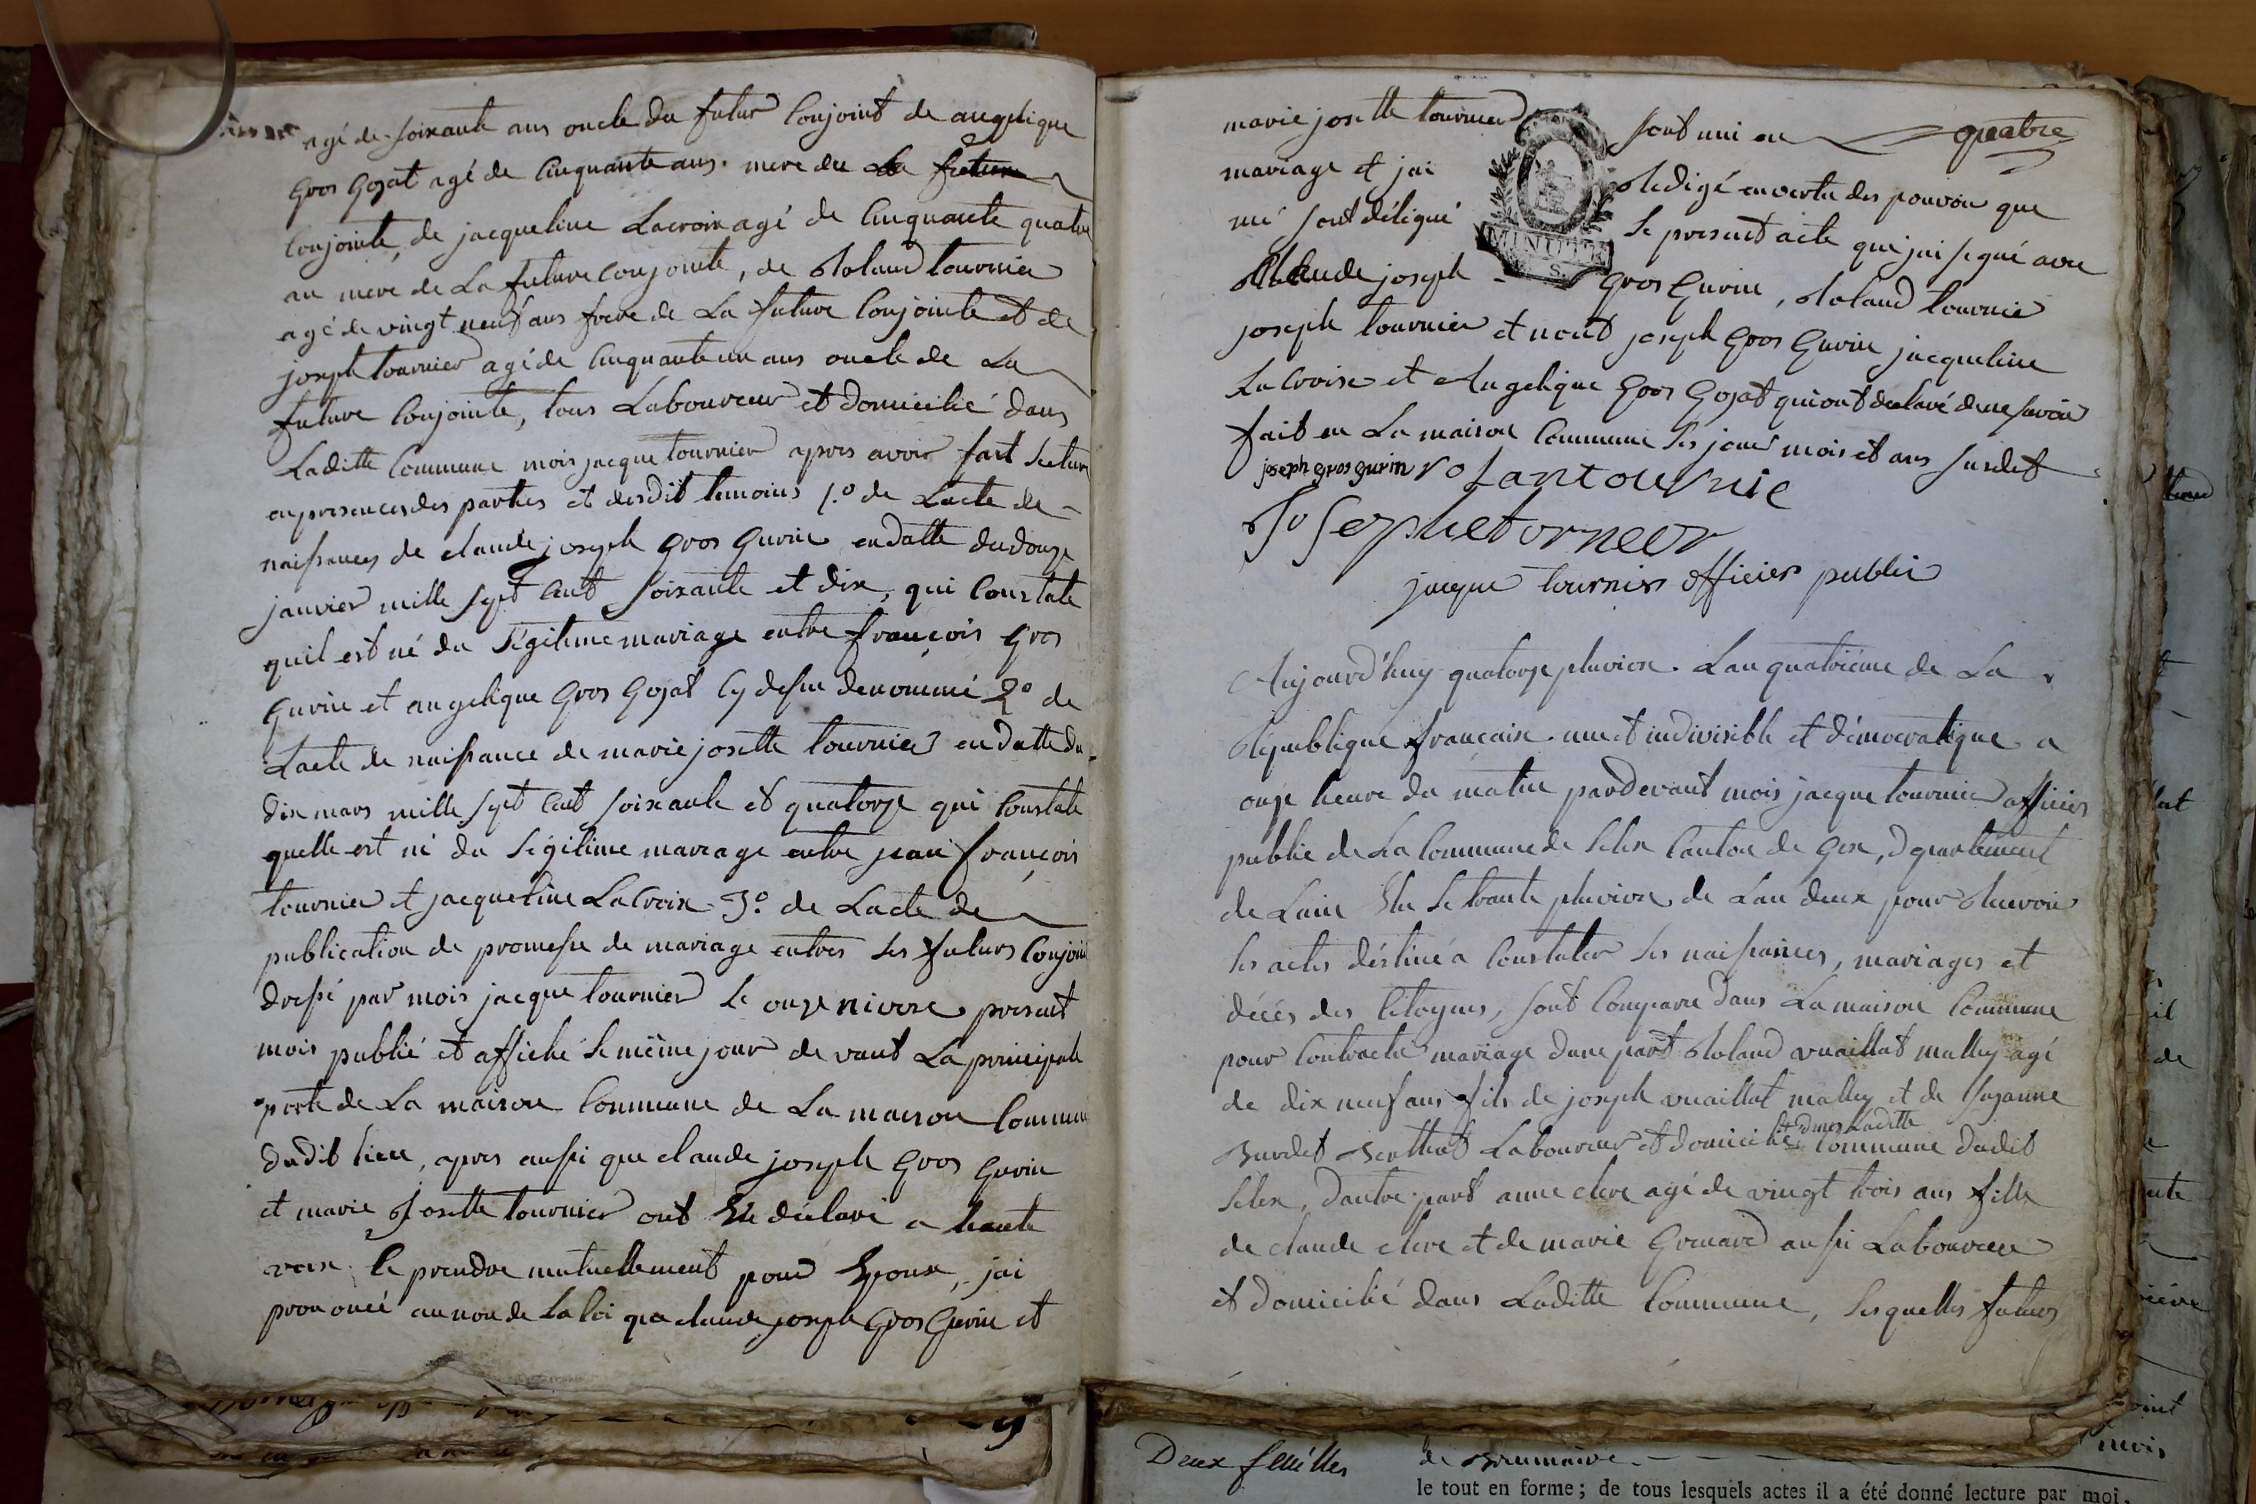 agé de soixante ans oncle du futur Conjoint de angelique
gros gojat agé de Cinquante ans. mere du La future
Conjointe, de jacqueline Lacroix agé de Cinquante quatre
an mere de La future Conjointe, de Roland tournier
agé de vingt neuf ans frere de La future Conjointe et de
joseph tournier agé de Cinquante un ans oncle de La
future Conjointe, tous Laboureur et domicilié dans
Laditte Commune mois jacque tournier apres avoir fait Lecture
en presences des parties et desdit temoins 1.º de Lacte de
naissances de claude joseph gros gurin en datte du douze
janvier mille sept Cent soixante et dix, qui Constate
quil est né du Légitime mariage entre françois gros
gurin et angelique gros gojat Cy dessu denommé 2º de
Lacte de naissance de marie josette tournier en datte du
dix mars mille sept Cent soixante et quatorze qui Constate
quelle est né du Légitime mariage entre jean françois
tournier et jacqueline LaCroix 3º. de Lacte de
publication de promesse de mariage entres Les futurs Conjoin
dressé par mois jacque tournier Le onze nivose present
mois publié et affiché Le même jour devant La principale
porte de La maison Commune de La maison Commune
dudit lieu, apres aussi que claude joseph gros gurin
et marie Josette tournier ont Eu déclaré a haute
voix Ce prendre mutuellement pour Epoux, jai
prononcé au non de La loi que claude joseph gros gurin et
marie josette tournier sont uni en quatre
mariage et jai Redigé en vertu des pouvoir que
mé sont délégué Le present acte que jai signé avec
Claude joseph - gros gurin, Roland tournier
joseph tournier et nont joseph gros gurin jacqueline
La Croix et Angelique gros gojat qui ont declaré de ne savoir
fait en La maison Commune Les jour mois et ans susdit
joseph gros gurin rolantournie
Josephetorneor
jacque tournier officier public
MINUTE
S.
Aujourd'huy quatorze pluviose. Lan quatriéme de La
République française. une et indivisible et démocratique. a
onze heure du matin pardevant mois jacque tournier officier
public de La Commune de Lelex Canton de Gex, departement
de Lain Elu Le trante pluviose de Lan deux pour Recevoir
Les actes déstiné a Constater Les naissances, mariages et
décés des Citoyens, sont Comparu dans La maison Commune
pour Contracté mariage dune part Roland vuaillat malley agé
de dix neuf ans fils de joseph vuaillat malley et de suzanne
Burdet Laboureur et domicilié dans Laditte Commune dudit
Lelex, dautre part anne clerc agé de vingt trois ans fille
de claude clerc et de marie grenard aussi Laboureur
et domicilié dans Laditte Commune, Lesquelles futurs
Deux feuilles de Brumaire.
le tout en forme; de tous lesquels actes il a été donné lecture par moi,